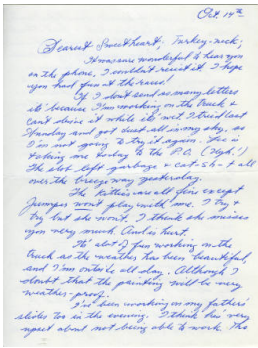 Oct. 14th
Dearest Sweetheart, Turkey-neck,
It was so wonderful to hear you
on the phone, I couldn't resist it. I hope
you had fun at the races!
If I don't send as many letters
it's because I'm working on the truck &
can't do it while it's wet. I tried last
Sunday and got dust all in my, so
I'm not going to try it again. She is
taking me today to the P.O.
The dog left garbage + cat-sh-t all
over the breezeway yesterday.
The kitties are all fine except
Jumper won't play with me. I try &
try but she won't. I think she misses
you very much. And is hurt.
It's a lot of fun working on the
truck as the weather has been beautiful,
and I'm outside all day. Although I
doubt that the painting will be very
weather-proof.
I've been working on my father's
slides too in the evening. I think he's very
upset about not being able to work. The